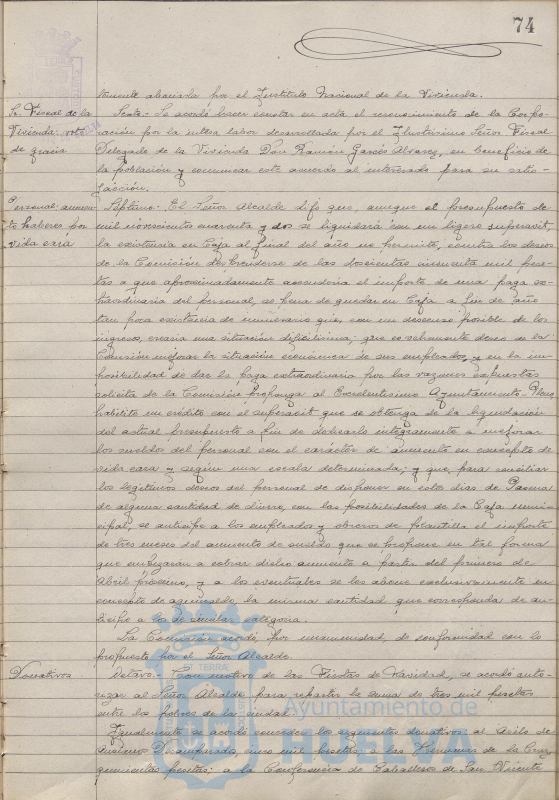 74
tamente abonarla por el Instituto Nacional de la Vivienda.
Sr. Fiscal de la Vivienda: voto de gracia
Sexto.- Se acordó hacer constar en acta el reconocimiento de la Corpo-
ración por la intesa labor desarrollada por el Ilustrísimo Señor Fiscal
Delegado de la Vivienda Don Ramón Garcés Alvarez, en beneficio de
la población y comunicar este acuerdo al interesado para su satis-
facción.
Personal: aumento haberes por vida cara
Séptimo.- El Señor Alcalde dijo que, aunque el presupuesto de
mil novecientos cuarenta y dos se liquidará con un ligero superavit,
la existencia en Caja al final del año no permite, contra los deseos
de la Comisión desprenderse de las doscientas cincuenta mil pese-
tas a que aproximadamente ascendería el importe de una paga ex-
traordinaria del personal, so pena de quedar en Caja a fin de año
tan poca existencia de numerario que, con un descenso posible de los
ingresos, crearía una situación dificilísima; que es vehemente deseo de la
Comisión mejorar la situación económica de sus empleados, y en la im-
posibilidad de dar la paga extraordinaria por las razones expuestas
solicita de la Comisión proponga al Excelentísimo Ayuntamiento Pleno
habilite un crédito con el superavit que se obtenga de la liquidación
del actual Presupuesto a fin de dedicarlo íntegramente a mejorar
los sueldos del personal con el carácter de aumento en concepto de
vida cara y según una escala determinada; y que, para conciliar
los legítimos deseos del personal de disponer en estos días de Pascua
de alguna cantidad de dinero, con las posibilidades de la Caja muni-
cipal, se anticipe a los empleados y obreros de plantilla el importe
de tres meses del aumento de sueldo que se propone en tal forma
que empezaran a cobrar dicho aumento a partir del primero de
Abril próximo, y a los eventuales se les abone exclusivamente en
concepto de aguinaldo la misma cantidad que corresponda de an-
ticipo a los de similar categoría.
La Comisión acordó, por unanimidad, de conformidad con lo
propuesto por el Señor Alcalde.
Donativos
Octavo.- Con motivo de las Fiestas de Navidad, se acordó auto-
rizar al Señor Alcalde para repartir la suma de tres mil pesetas
entre los pobres de la ciudad.
Igualmente se acordó conceder los siguientes donativos: al Asilo de
Ancianos Desamparados, cinco mil pesetas: a las Hermanas de la Cruz,
quinientas pesetas: a la Conferencia de Caballeros de San Vicente
Ayuntamiento de
HUELVA